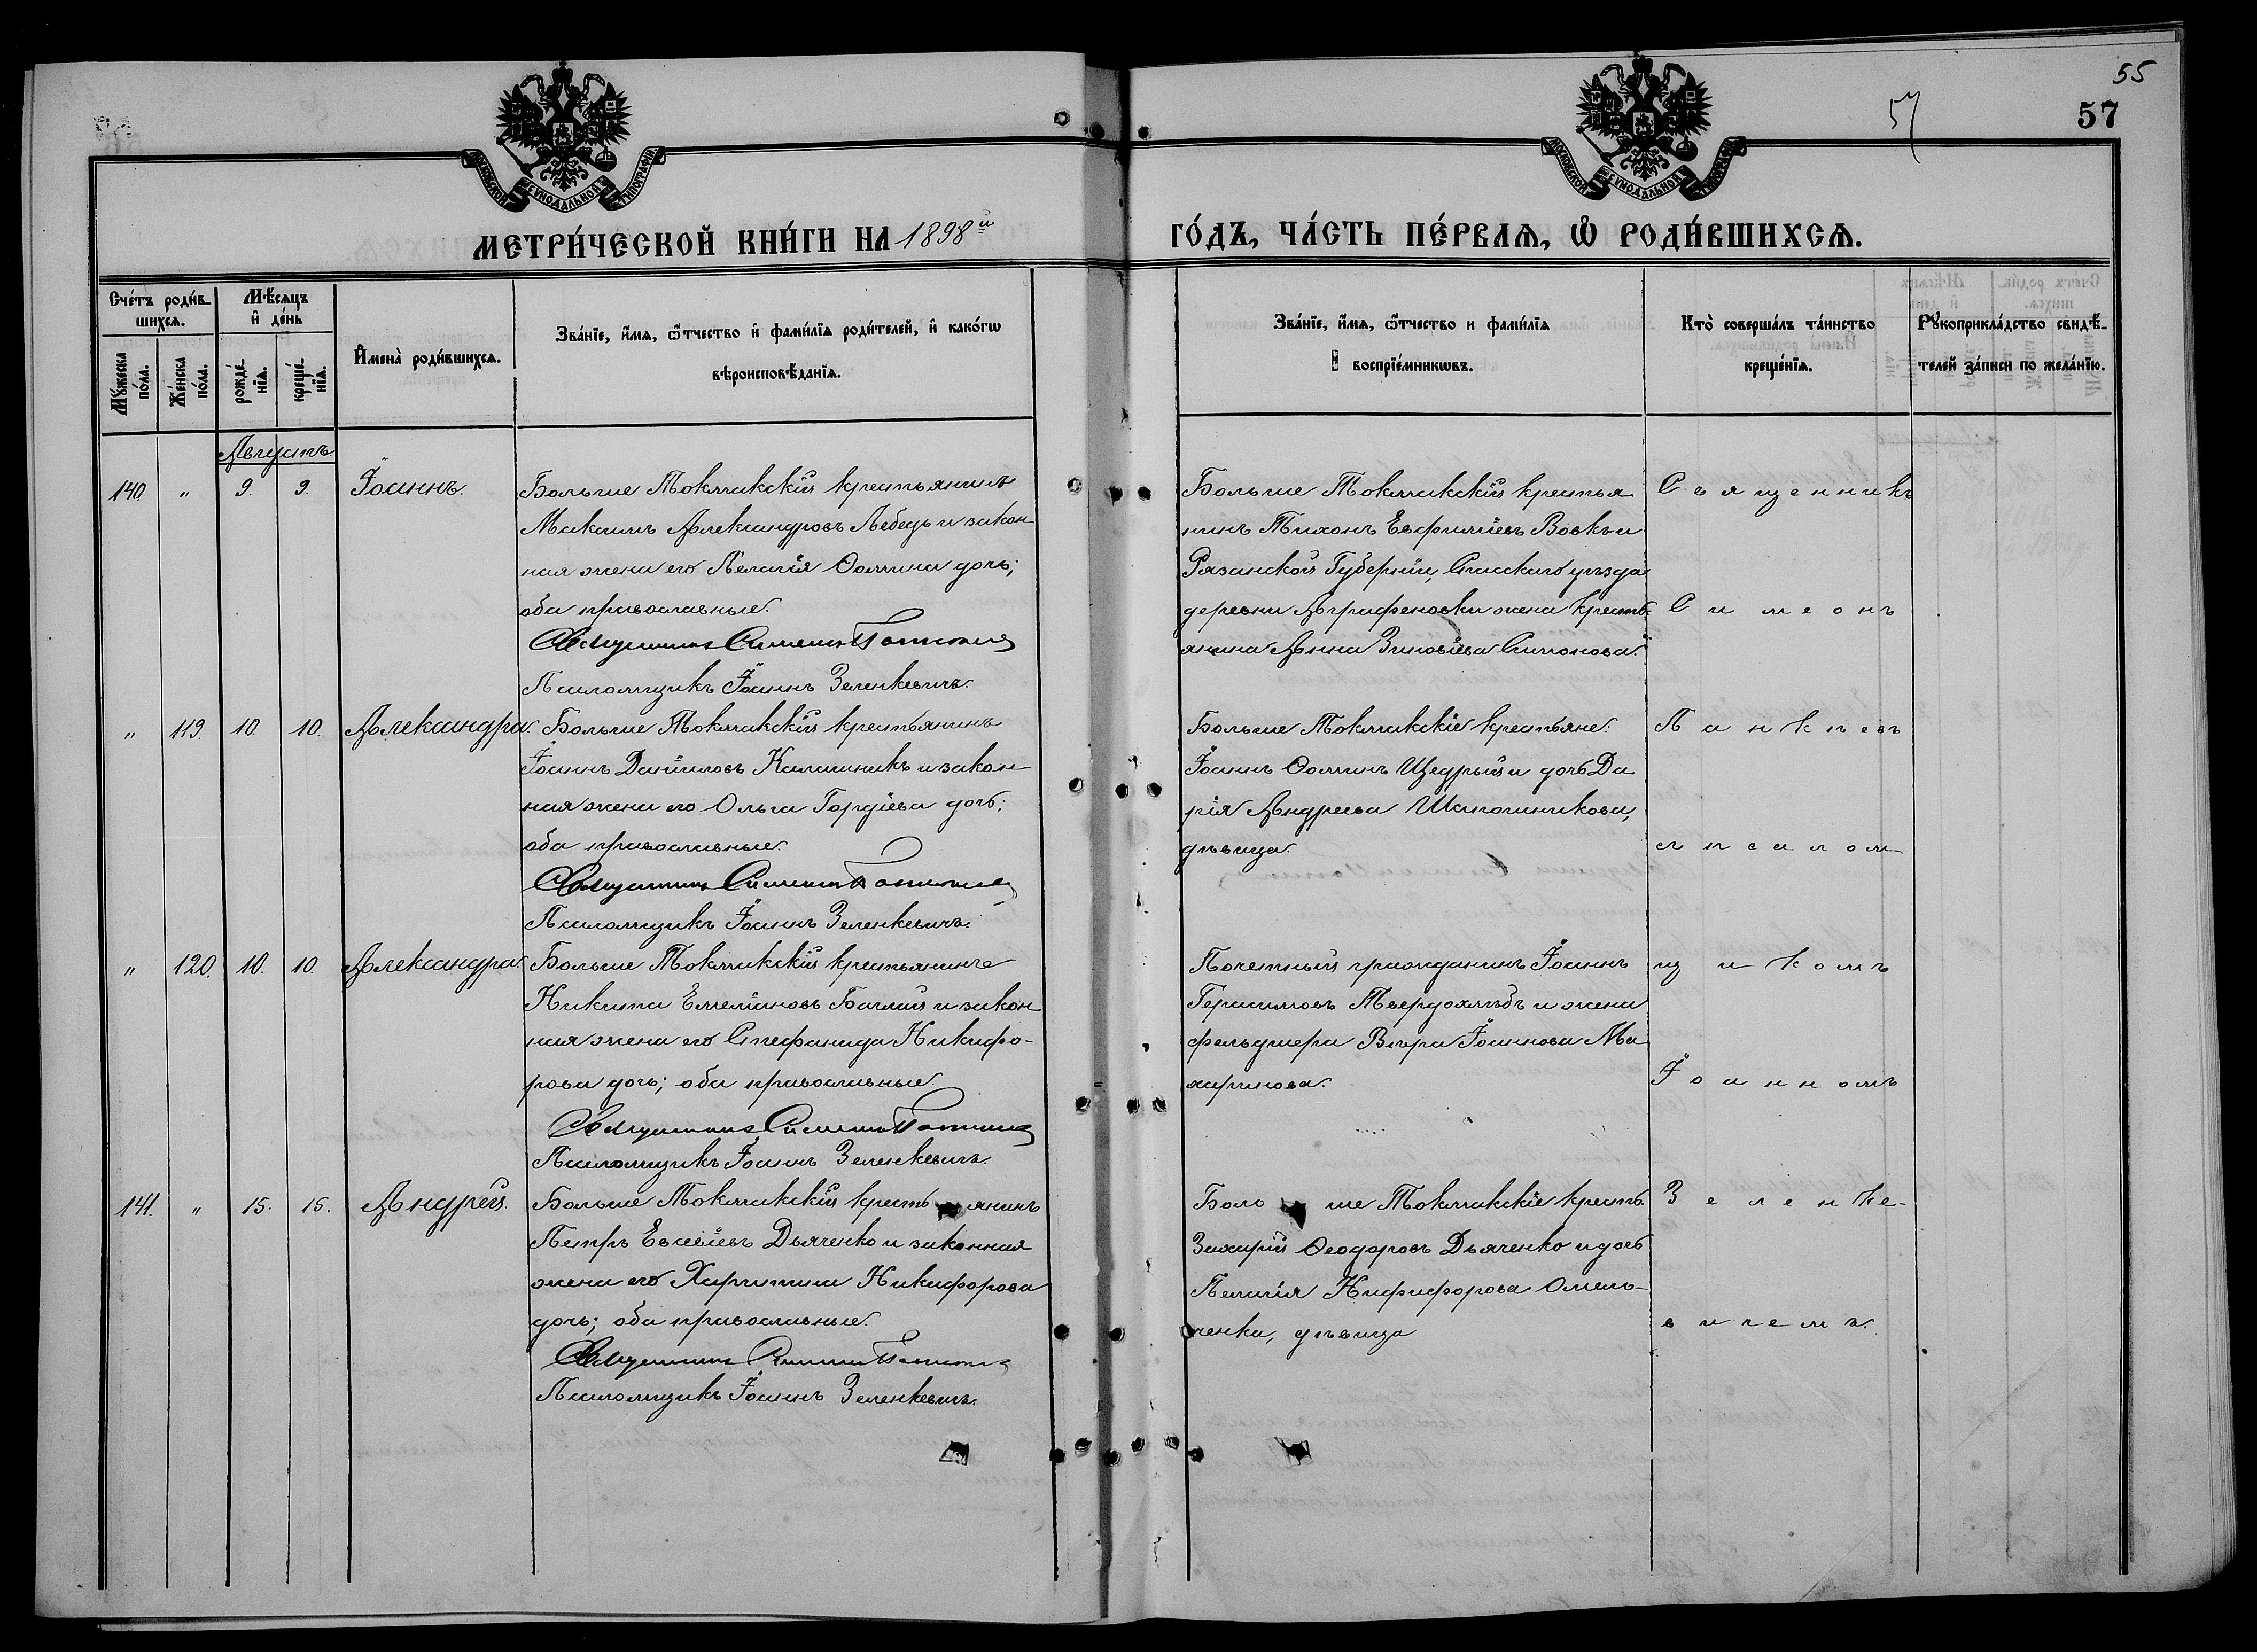 55
57
57
МОСКОВСКОЙ СѴНОДАЛЬНОЙ ТИПОГРАФІИ
МОСКОВСКОЙ СѴНОДАЛЬНОЙ ТИПОГРАФІИ
МЕТРИ́ЧЕСКОЙ КНИ́ГИ НА 1898й
ГО́ДЪ, ЧА́СТЬ ПЕ́РВАѦ, Ѽ РОДИ́ВШИХСѦ.
Сче́тъ роди́в-
шихсѧ.
Мѣ́сѧцъ
и҆ де́нь
Мꙋ́жеска
по́ла.
Же́нска
по́ла.
рожде́-
нїѧ.
креще́-
нїѧ.
И҆мена̀ роди́вшихсѧ.
Зва́нїе, и҆́мѧ, ѻ҆́тчество и҆ фами́лїѧ роди́телей, и҆ како́гѡ
вѣроисповѣ́данїѧ.
Зва́нїе, и҆́мѧ, ѻ҆́тчество и фами́лїѧ
воспрїе́мникѡвъ.
Кто̀ соверша́лъ та́инство
креще́нїѧ.
Рꙋкоприкла́дство свидѣ́-
телей за́писи по жела́нїю.
Августъ
140. " 9. 9. Іоаннъ.
Больше Токмакскій крестьянинъ
Максимъ Александровъ Лебедь и закон
ная жена его Пелагія Ѳомина дочь;
оба православные.
Священникъ Симеонъ
Псаломщикъ Іоаннъ Зеленкевичъ.
Больше Токмакскій крестья
нинъ Тихонъ Евфиміевъ Вовкъ и
Рязанской Губерніи, Спасскаго уѣзда
деревни Аграфеновки жена кресть
янина Анна Зиновіева Симонова.
" 119. 10. 10. Александра.
Больше Токмакскій крестьянинъ
Іоаннъ Даніиловъ Калашникъ и закон
ная жена его Ольга Гордіева дочь;
оба православные.
Священникъ Симеонъ
Псаломщикъ Іоаннъ Зеленкевичъ.
Больше Токмакскіе крестьяне:
Іоаннъ Ѳоминъ Щедрый и дочь Да
рія Андреева Шапошникова,
дѣвица.
" 120. 10. 10. Александра.
Больше Токмакскій крестьянинъ
Никита Емеліановъ Баглай и закон
ная жена его Стефанида Никифо-
рова дочь; оба православные.
Священникъ Симеонъ
Псаломщикъ Іоаннъ Зеленкевичъ.
Почетный гражданинъ Іоаннъ
Герасимовъ Твердохлѣбъ и жена
фельдшера Вѣра Іоаннова Ма
харинова.
141. " 15. 15. Андрей.
Больше Токмакскій крестьянинъ
Петръ Евсевіевъ Дьяченко и законная
жена его Харитина Никифорова
дочь; оба православные.
Священникъ Симеонъ
Псаломщикъ Іоаннъ Зеленкевичъ.
Больше Токмакскіе кресть.
Захарій Ѳеодоровъ Дьяченко и дочь
Пелагія Нифифорова Омель-
ченка, дѣвица
Священникъ
Симеонъ
съ псалом-
щикомъ
Іоанномъ
Зеленке-
вичемъ.